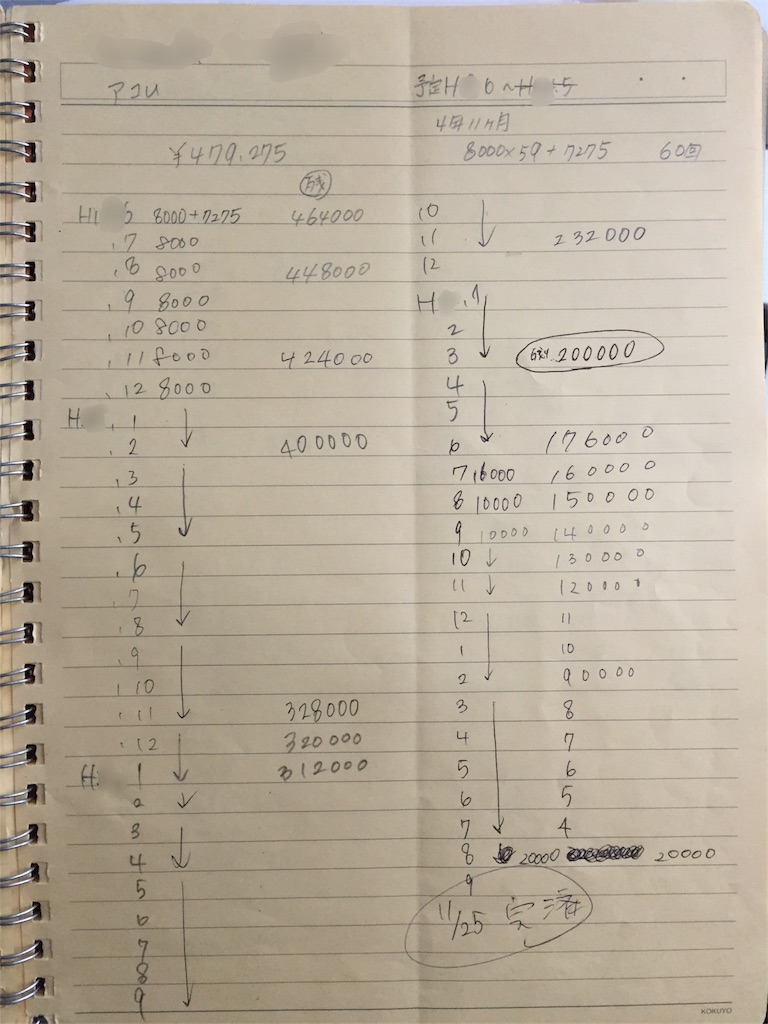 アコム
¥479,275
残
H1 6 8000+7275 464000
.7 8000
.8 8000 448000
.9 8000
.10 8000
.11 8000 424000
.12 8000
H. .1
.2 400000
.3
.4
.5
.6
.7
.8
.9
.10
.11 328000
.12 320000
H. 1 312000
2
3
4
5
6
7
8
9
予定H 6~H .5
4年11ヶ月
8000×59+7275 60回
10
11 232000
12
H .1
2
3 残り 200000
4
5
6 176000
7 16000 160000
8 10000 150000
9 10000 140000
10 130000
11 120000
12 11
1 10
2 90000
3 8
4 7
5 6
6 5
7 4
8 20000 20000
9
11/25 完済
KOKUYO